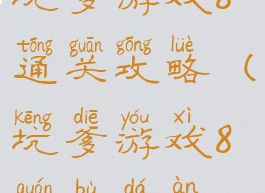 坑爹游戏8
tōng guān gōng lüè
通关攻略（
kēng diē yóu xì
坑爹游戏8
quán bù dá àn